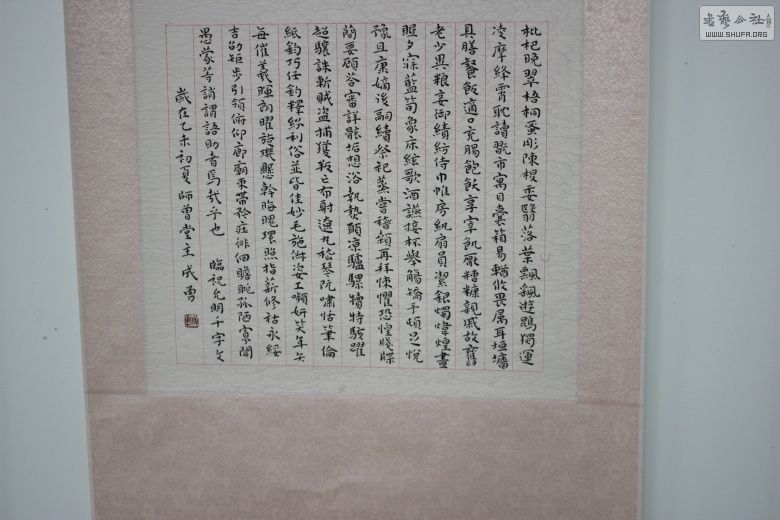 枇杷晚翠梧桐蚤彫陳根委翳落葉飄飖遊鵾獨運
凌摩絳霄耽讀翫市寓目囊箱易輶攸畏属耳垣墻
具膳飡飯適口充腸飽飫享宰飢厭糟糠親戚故舊
老少異粮妾御績紡侍巾帷房紈扇員潔銀燭煒煌晝
眠夕寐藍筍象床絃歌酒讌接杯舉觴矯手頓足悅
豫且康嫡後嗣續祭祀蒸嘗稽顙再拜悚懼恐惶牋牒
簡要顧荅審詳骸垢想浴執熱願凉驢騾犢特駭躍
超驤誅斬賊盗捕獲叛亡布射遼丸嵇琴阮嘯恬筆倫
紙鈞巧任釣釋紛利俗並皆佳妙毛施淑姿工嚬妍笑年矢
每催羲暉朗曜旋璣懸幹晦魄環照指薪修祜永綏
吉劭矩步引領俯仰廊廟束帶矜莊徘徊瞻眺孤陋寡聞
愚蒙等誚謂語助者焉哉乎也 臨祝允明千字文
歲在乙未初夏師曾堂主成勇
書藝公社
WWW.SHUFA.ORG